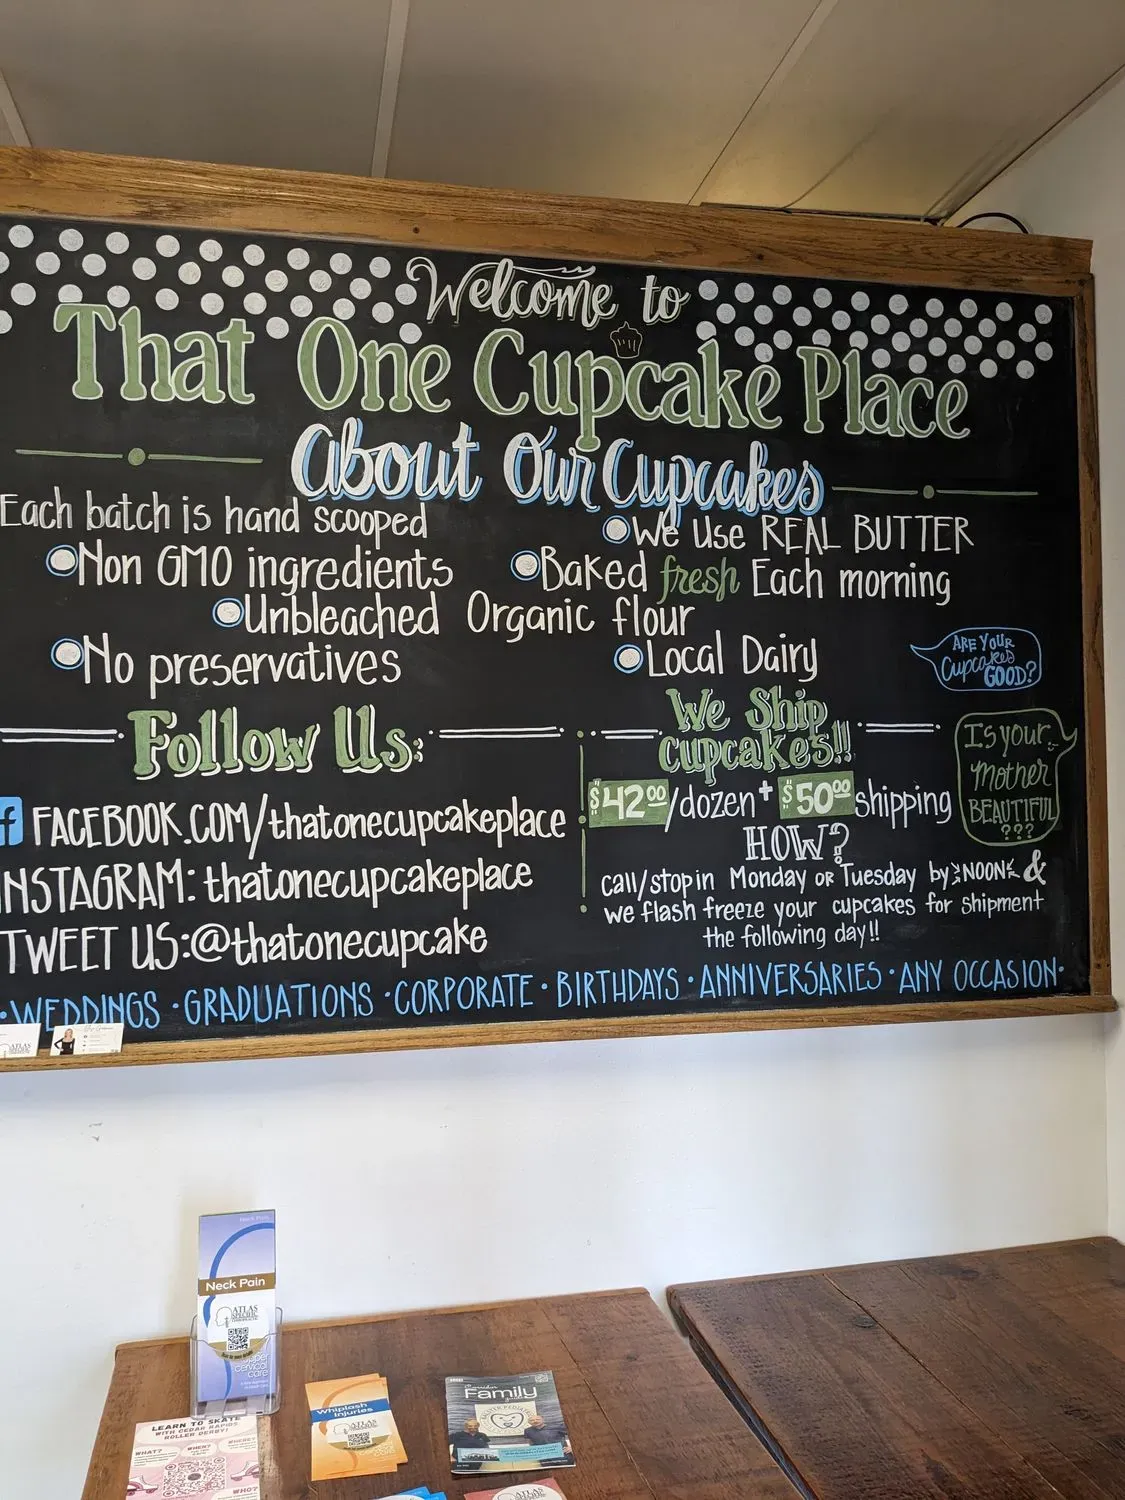 Welcome to
That One Cupcake Place
About Our Cupcakes
Each batch is hand scooped
We Use REAL BUTTER
Non GMO ingredients
Baked fresh Each morning
Unbleached Organic flour
No preservatives
Local Dairy
ARE YOUR
Cupcakes
GOOD?
Is your
Mother
BEAUTIFUL
???
Follow Us:
f FACEBOOK.COM/thatonecupcakeplace
INSTAGRAM: thatonecupcakeplace
TWEET US:@thatonecupcake
We Ship
Cupcakes!!
$42.00/dozen + $50.00 shipping
HOW?
call/stop in Monday OR Tuesday by NOON &
we flash freeze your cupcakes for shipment
the following day!!
·WEDDINGS ·GRADUATIONS ·CORPORATE ·BIRTHDAYS ·ANNIVERSARIES ·ANY OCCASION·
ATLAS
Neck Pain
Neck Pain
ATLAS
SPECIFIC
upper
cervical
care
Whiplash
Injuries
ATLAS
Family
LEARN TO SKATE
WITH CEDAR RAPIDS
ROLLER DERBY!
WHAT?
WHEN?
WHERE?
WHO?